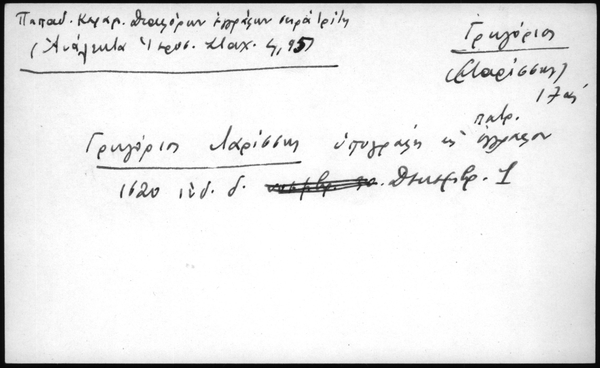 Παπαδ. Κεραμ. Διαφόρων ἐγγράφων σειρὰ τρίτη
(Ἀνάλεκτα Ἱεροσ. Σταχ. 4, 95)
Γρηγόριος
(Λαρίσσης)
17ας
Γρηγόριος Λαρίσσης ὑπογράφει εἰς πατρ. ἔγγραφον
1620 ἰνδ. δ. Δεκεμβρ. 1